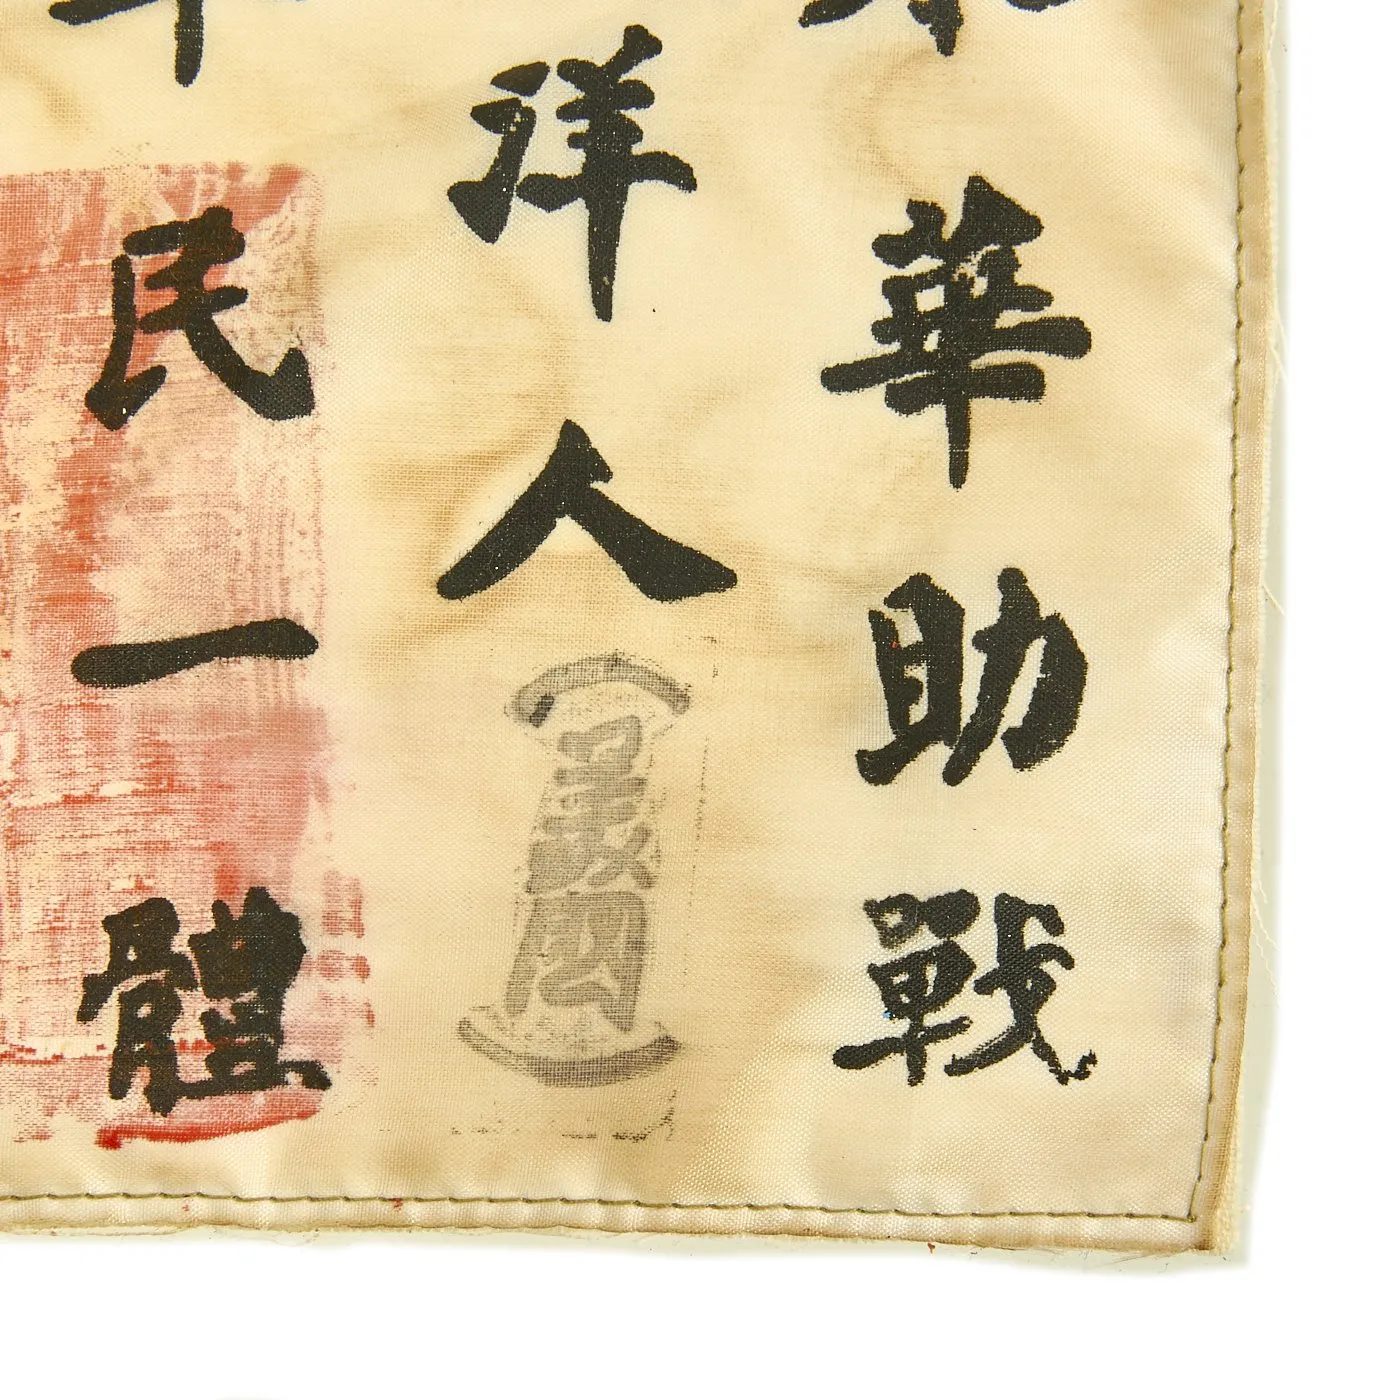 華助戰
洋人
民一體